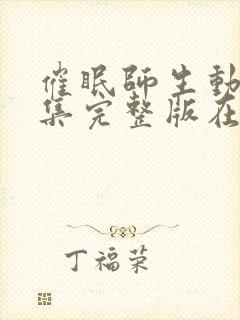 催眠師生動
集完整版在
丁福荣